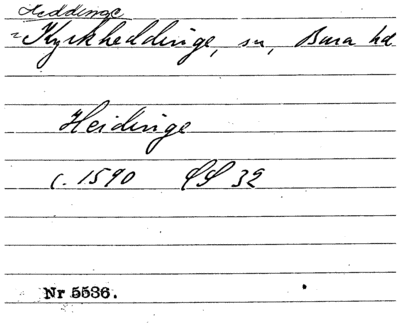 Heddinge
= Kyrkheddinge, sn, Bara hd
Heidinge
c. 1590 SS 32
Nr 5536.